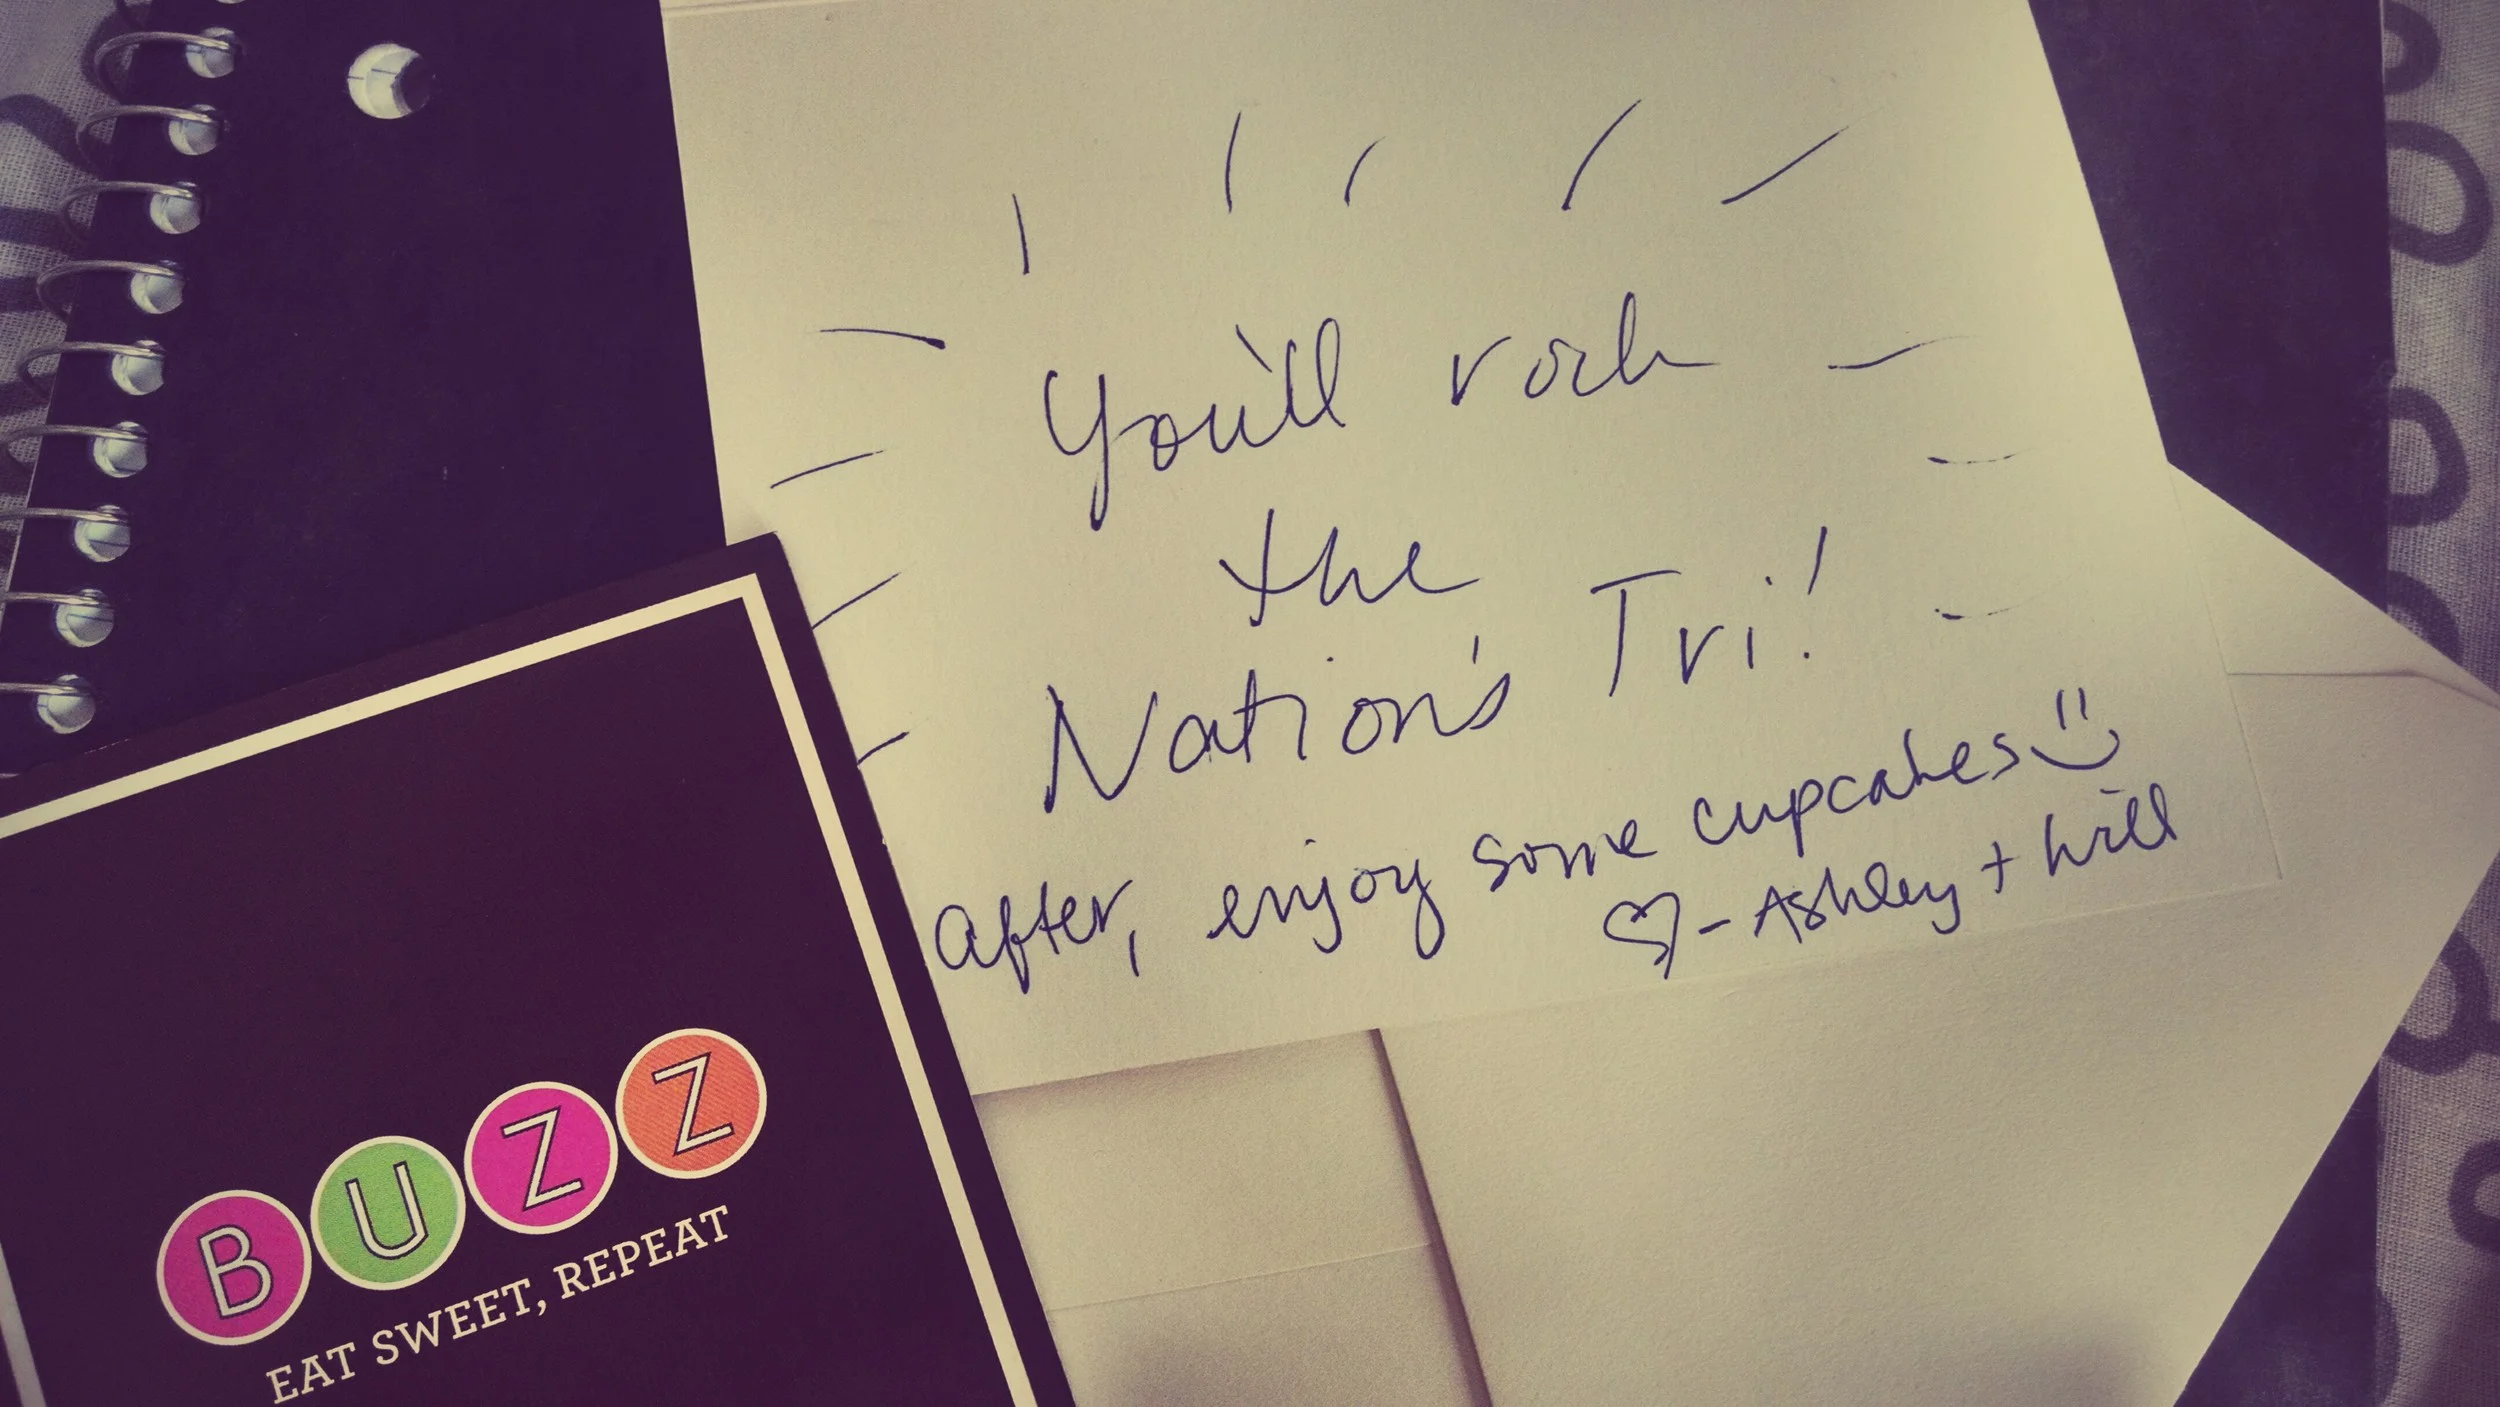 You'll rock
the
Nation's Tri!
after, enjoy some cupcakes
- Ashley + Will
BUZZ
EAT SWEET, REPEAT